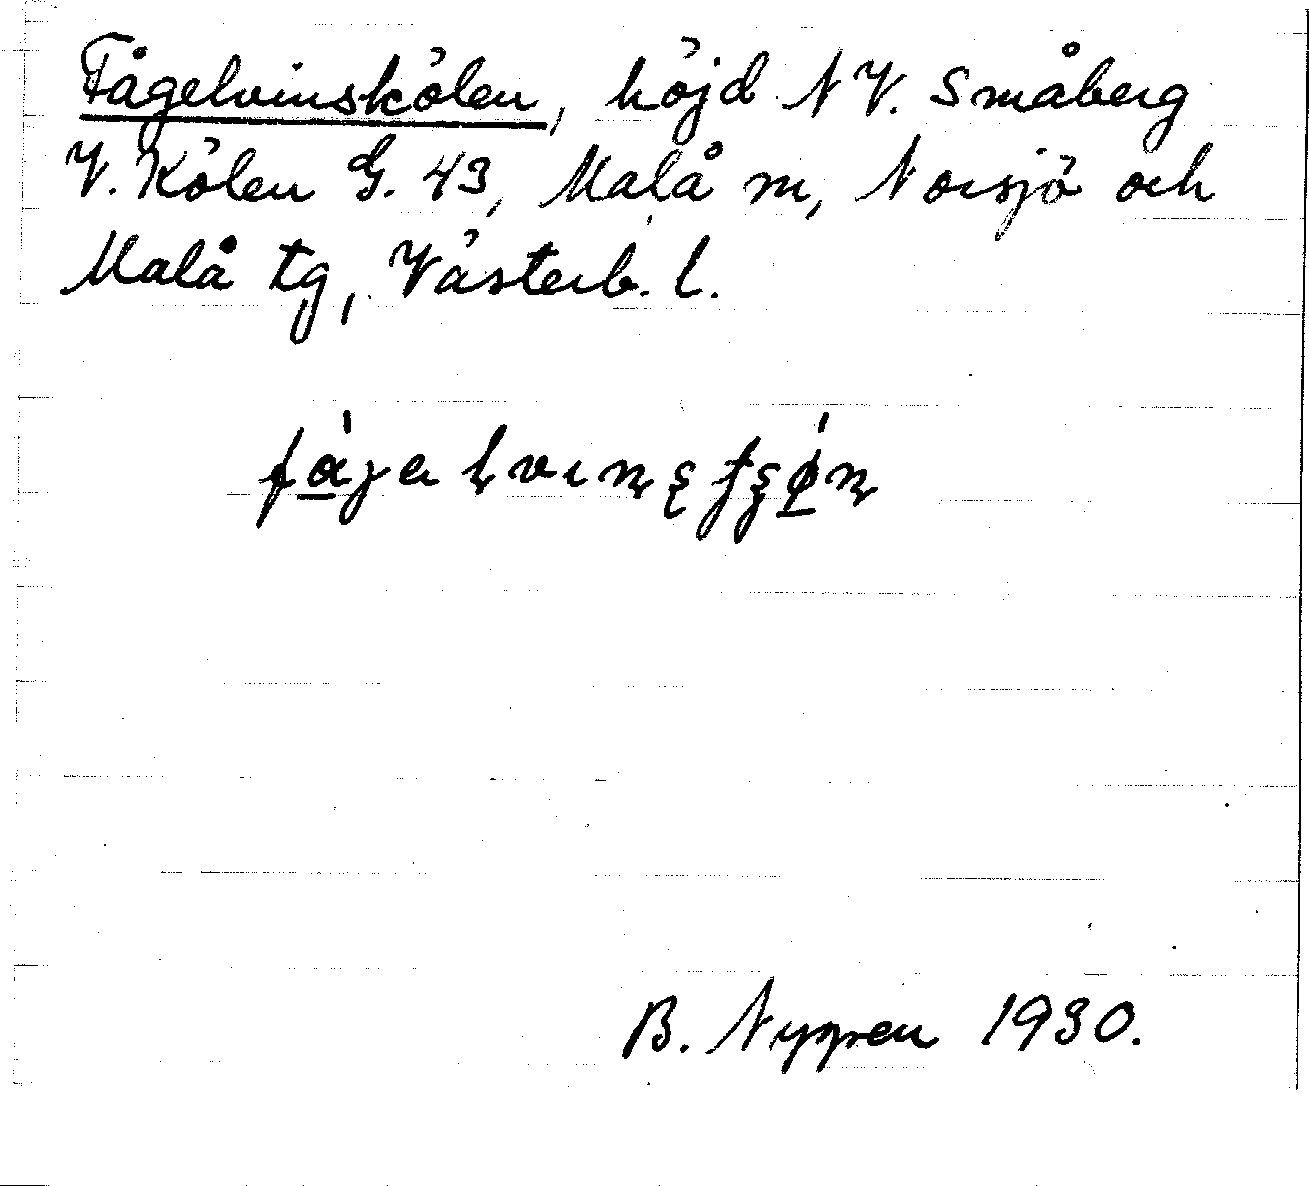 Fågelvinskölen, höjd NV. Småberg
V. Kölen G. 43, Malå sn, Norsjö och
Malå tg, Västerb. l.
B. Nyppen 1930.